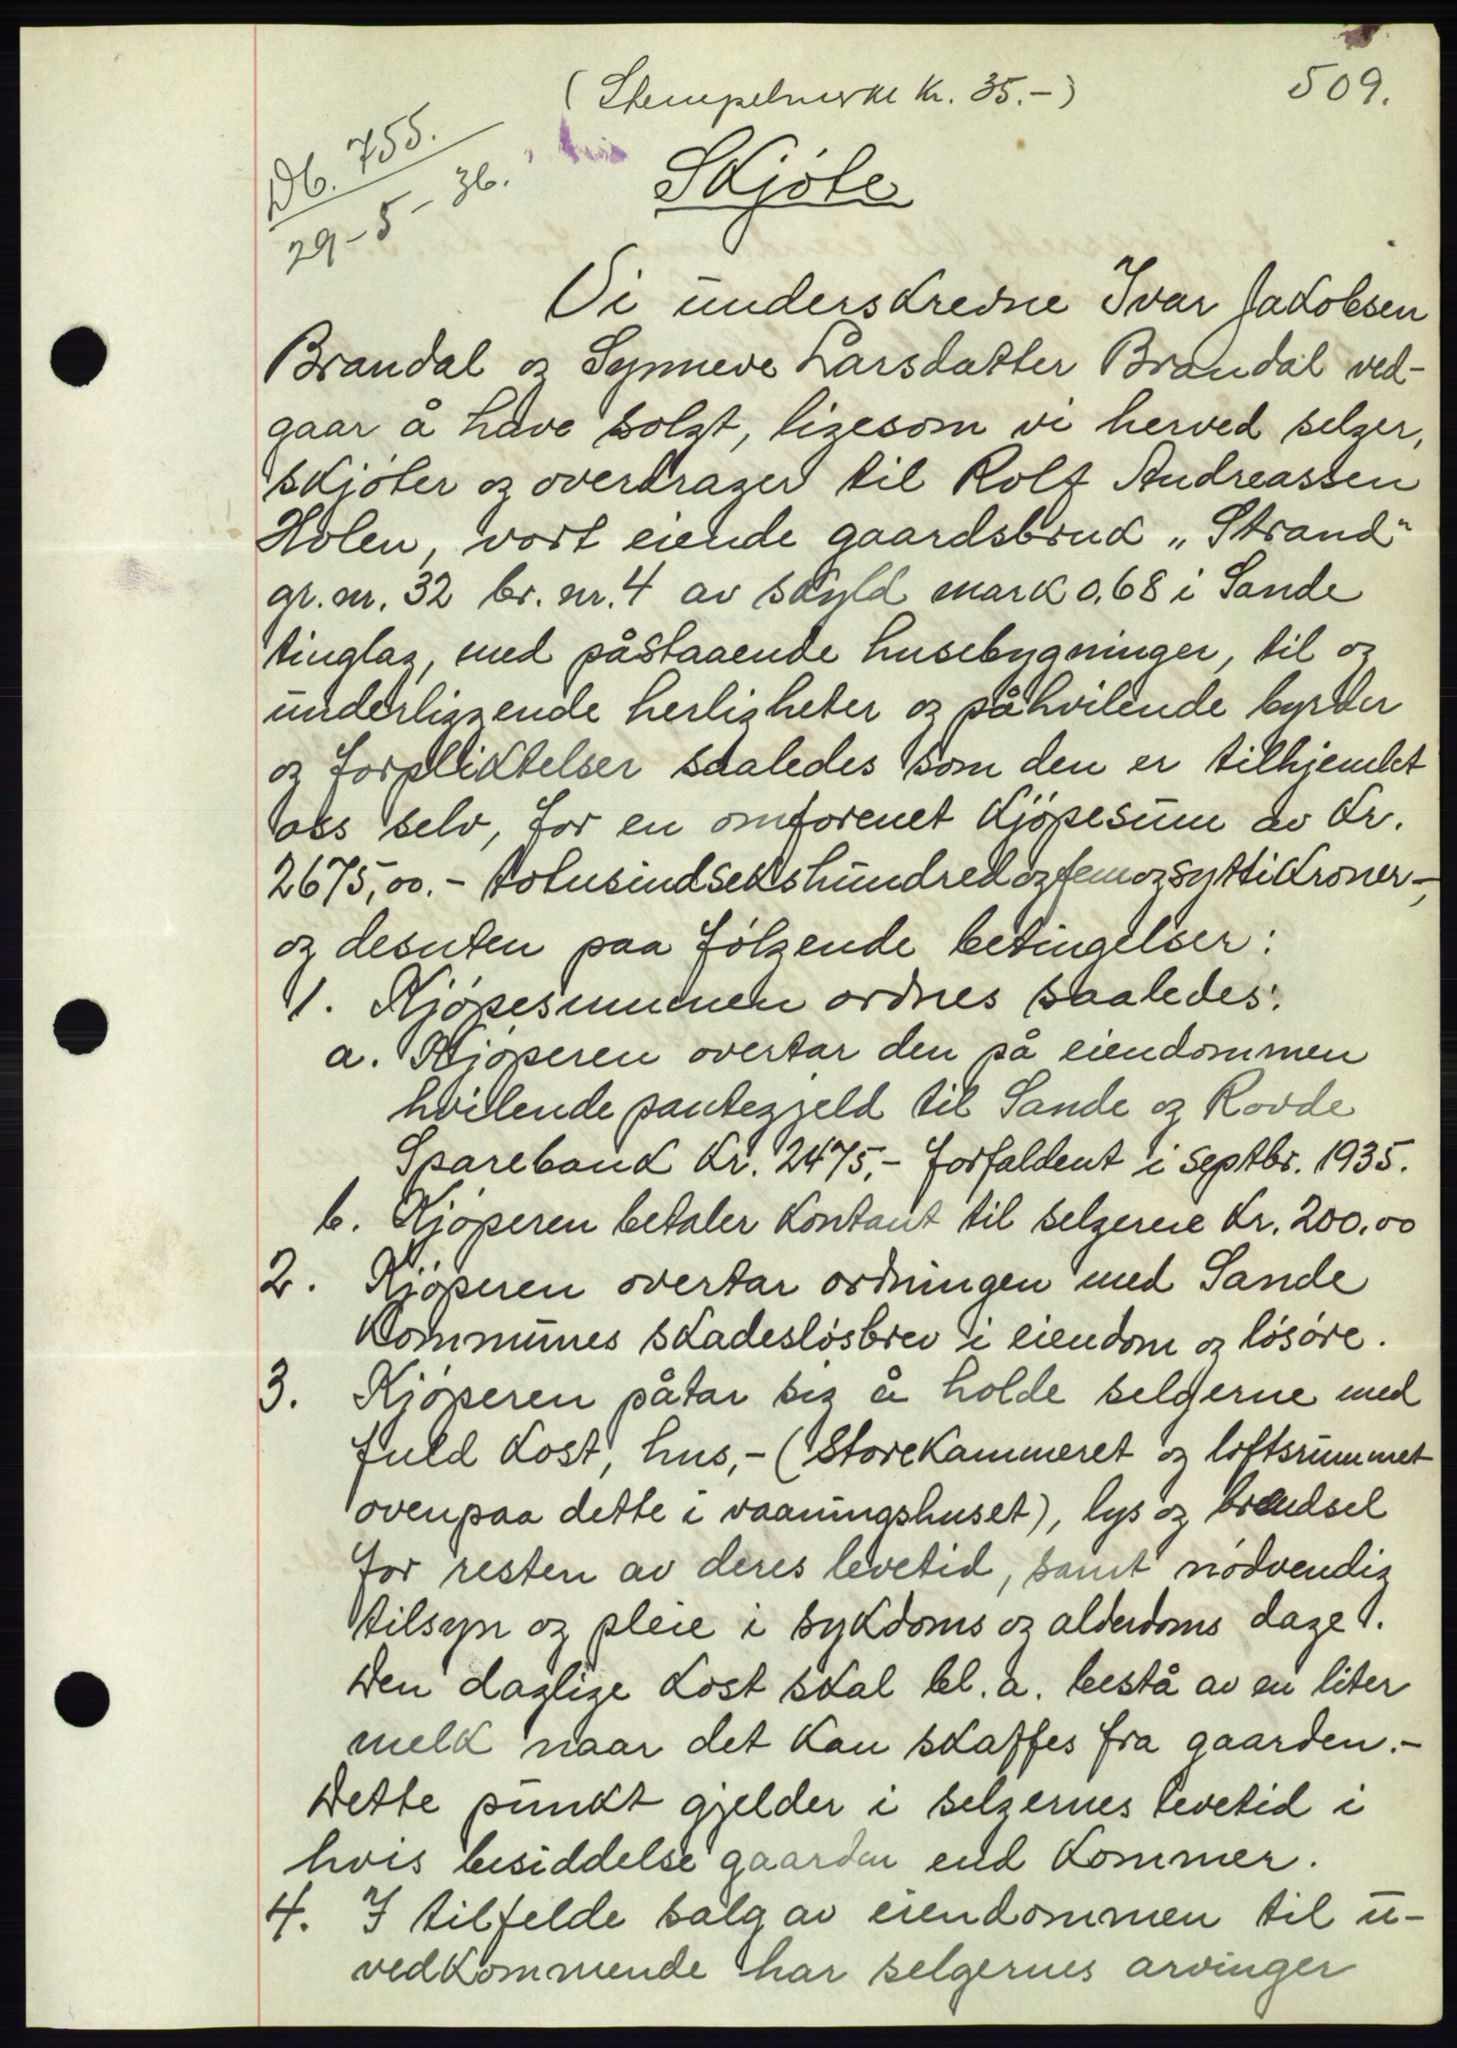 (Stempelmerke kr. 35.-)
509.
Db. 755.
29-5-36.
Skjöte
Vi underskrevne Ivar Jakobsen
Brandal og Synneve Larsdatter Brandal ved-
gaar å have solgt, ligesom vi herved selger,
skjöter og overdrager til Rolf Andreassen
Holen, vort eiende gaardsbruk „Strand"
gr. nr. 32 br. nr. 4 av skyld mark 0,68 i Sande
tinglag, med påstaaende husebygninger, til og
underliggende herligheter og påhvilende byrder
og forpliktelser saaledes som den er tilhjemlet
oss selv, for en omforenet kjöpesum av kr.
2675,00.- totusindsekshundredogfemogsyttikroner-,
og desuten paa fölgende betingelser:
1. Kjöpesummen ordnes saaledes:
a. Kjöperen overtar den på eiendommen
hvilende pantegjeld til Sande og Rovde
Sparebank kr. 2475,- forfaldent i septbr. 1935.
b. Kjöperen betaler kontant til selgerne kr. 200.00
2. Kjöperen overtar ordningen med Sande
kommunes skadeslösbrev i eiendom og lösöre.
3. Kjöperen påtar sig å holde selgerne med
fuld kost, hus,- (Storekammeret og loftsrummet
ovenpaa dette i vaaningshuset), lys og brendsel
for resten av deres levetid, samt nödvendig
tilsyn og pleie i sykdoms og alderdoms dage.
Den daglige kost skal bl. a. bestå av en liter
melk naar det kan skaffes fra gaarden.-
Dette punkt gjelder i selgernes levetid i
hvis besiddelse gaarden end kommer.
4. I tilfelde salg av eiendommen til u-
vedkommende har selgernes arvinger